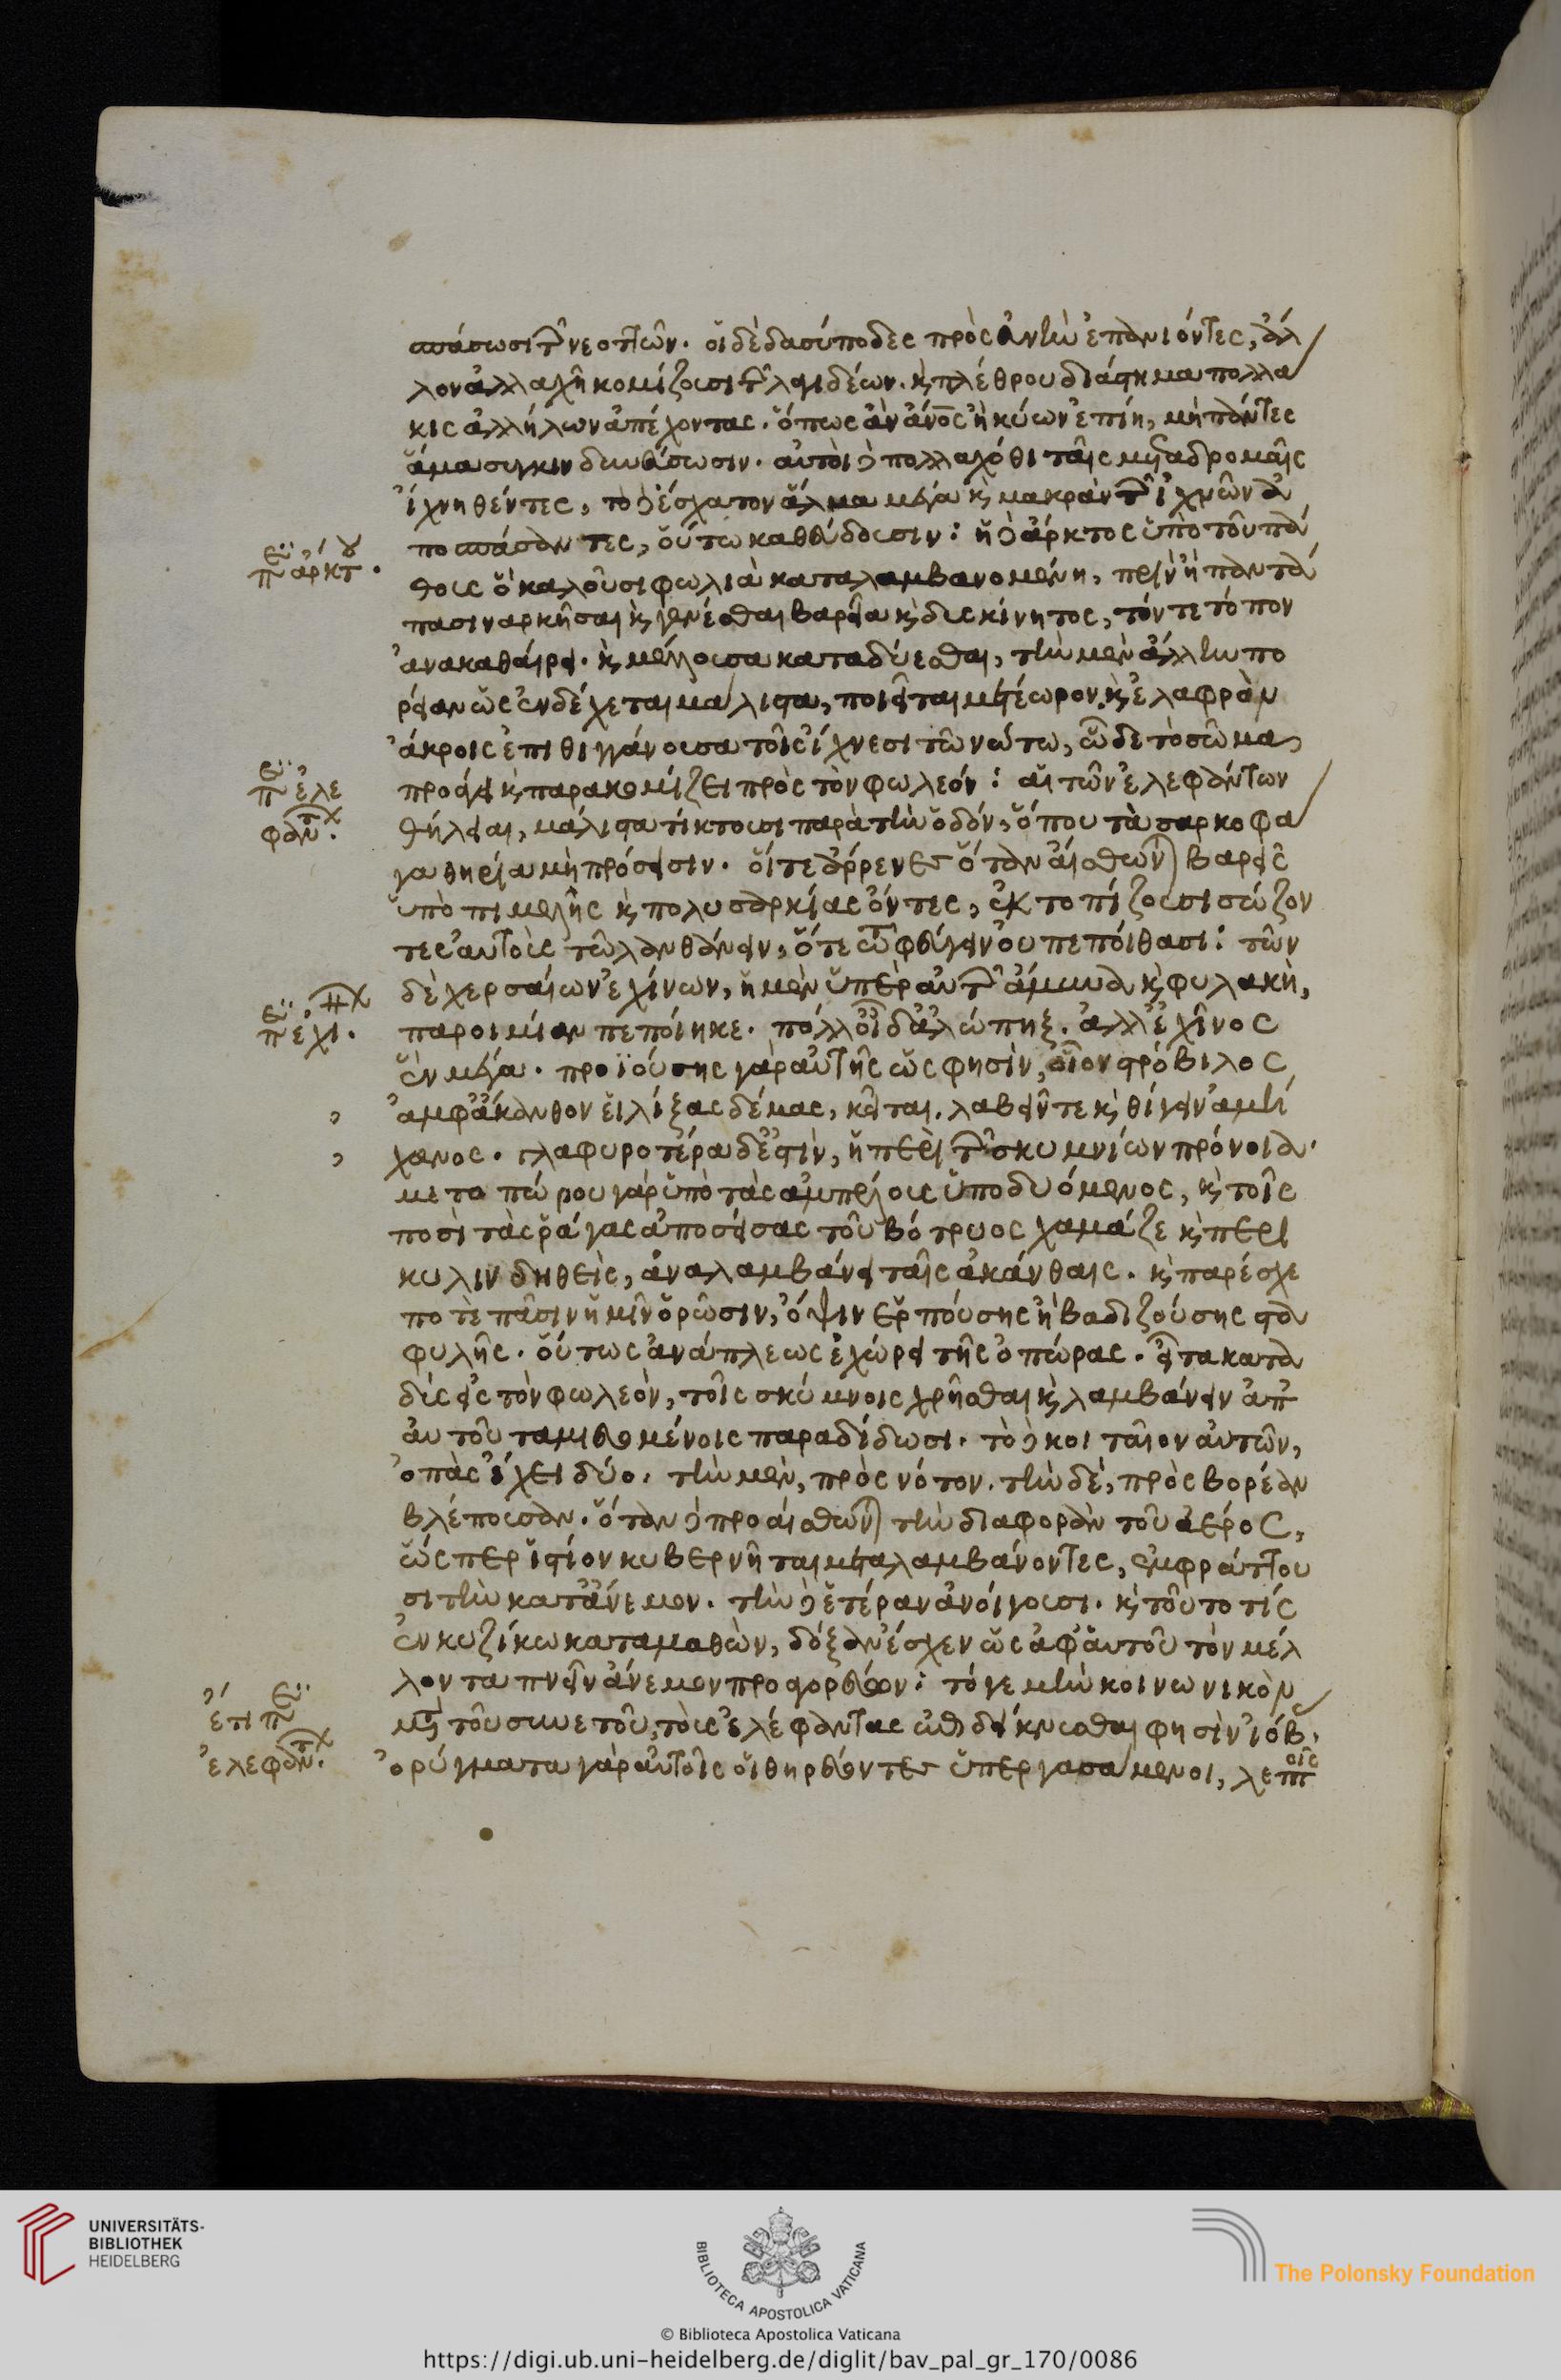 σπάσωσι τῶν νεοττῶν. οἱ δὲ δασύποδες πρὸς εὐνὴν ἐπανιόντες, ἄλ
λον ἀλλαχῆ κομίζουσι τῶν λαγιδέων. κ̀ πλέθρου διάστημα πολλα
κις ἀλλήλων ἀπέχοντας. ὅπως ἂν ἄνος ἢ κύων ἐπίη, μὴ πάντες
ἅμα συγκινδυνεύσωσιν. αὐτοὶ δὲ πολλαχόθι ταῖς μεταδρομαῖς
ἴχνη θέντες, τὸ δὲ ἔσχατον ἅλμα μέγα κ̀ μακρὰν τῶν ἰχνῶν ἀ
ποσπάσαντες, οὕτω καθεύδουσιν: ἡ δὲ ἄρκτος ὑπὸ τοῦ πά
θους ὃ καλοῦσι φωλιὰ καταλαμβανομένη, πρὶν ἢ παντά
πασι ναρκῆσαι κ̀ γενέσθαι βαρεῖα κ̀ δυσκίνητος, τόν τε τόπον
ἀνακαθαίρει. κ̀ μέλλουσα καταδύεσθαι, τὴν μὲν ἄλλην πο
ρείαν ὡς ἐνδέχεται μάλιστα, ποιεῖται μετέωρον κ̀ ἐλαφρὰν
ἄκροις ἐπιθιγγάνουσα τοῖς ἴχνεσι τῶ νώτω, δὲ τὸ σῶμα
προσάγει κ̀ παρακομίζει πρὸς τὸν φωλεόν: αἱ τῶν ἐλεφάντων
θήλειαι, μάλιστα τίκτουσι παρὰ τὴν ὁδόν, ὅπου τὰ σαρκοφά
γα θηρία μὴ πρόσεισιν. οἵ τε ἄρρενες ὅταν αἴσθων) βαρεῖς
ὑπὸ πιμελῆς κ̀ πολυσαρκίας ὄντες, ἐκτοπίζουσι σώζον
τες αὑτοὺς τῶ λανθάνειν, ὅτε τῶ φεύγειν οὐ πεποίθασι: τῶν
δὲ χερσαίων ἐχίνων, ἡ μὲν ὑπὲρ αὐτῶν ἄμυνα κ̀ φυλακὴ,
παροιμίαν πεποίηκε. πόλλ' οἶδ' ἀλώπηξ. ἀλλ' ἐχῖνος
ἓν μέγα. προϊούσης γὰρ αὐτῆς ὥς φησὶν, οἷον στρόβιλος
ἀμφ' ἄκανθον εἱλίξας δέμας, κεῖται. λαβεῖν τε κ̀ θίγειν ἀμή
χανος. γλαφυροτέρα δ' ἐστὶν, ἡ περὶ τῶν σκυμνίων πρόνοια.
μετοπώρου γὰρ ὑπὸ τὰς ἀμπέλους ὑποδυόμενος, κ̀ τοῖς
ποσὶ τὰς ῥάγας ἀποσείσας τοῦ βότρυος χαμάζε κ̀ περι
κυλινδηθεὶς, ἀναλαμβάνει ταῖς ἀκάνθαις. κ̀ παρέσχε
ποτὲ πᾶσιν ἡμῖν ὁρῶσιν, ὄψιν ἑρπούσης ἢ βαδιζούσης στα
φυλῆς. οὕτως ἀνάπλεως ἐχώρει τῆς ὀπώρας. εἶτα κατα
δὺς εἰς τὸν φωλεὸν, τοῖς σκύμνοις χρῆσθαι κ̀ λαμβάνειν ἀπ'
αὐτοῦ ταμιευομένοις παραδίδωσι. τὸ δὲ κοιταῖον αὐτῶν,
ὀπὰς ἔχει δύο. τὴν μὲν, πρὸς νότον. τὴν δὲ, πρὸς βορέαν
βλέπουσαν. ὅταν δὲ προαίσθων) τὴν διαφορὰν τοῦ ἀέρος,
ὥσπερ ἱστίον κυβερνῆται μεταλαμβάνοντες, ἐμφράττου
σι τὴν κατ' ἄνεμον. τὴν δὲ ἑτέραν ἀνοίγουσι. κ̀ τοῦτό τις
ἐν κυζίκω καταμαθὼν, δόξαν ἔσχεν ὡς ἀφ' αὑτοῦ τὸν μέλ
λοντα πνεῖν ἄνεμον προαγορεύων: τό γε μὴν κοινωνικὸν
μετὰ τοῦ συνετοῦ, τοὺς ἐλέφαντας ἀποδείκνυσθαι φησὶν ἰόβ.
ὀρύγματα γὰρ αὐτοῖς οἱ θηρεύοντες ὑπεργασάμενοι, λεπτοῖς
π ἄρκτου.
π ἐλε
φάντ.
π ἐχί.
ἔτι π
ἐλεφάντ.
UNIVERSITÄTS-
BIBLIOTHEK
HEIDELBERG
BIBLIOTECA APOSTOLICA VATICANA
The Polonsky Foundation
© Biblioteca Apostolica Vaticana
https://digi.ub.uni-heidelberg.de/diglit/bav_pal_gr_170/0086